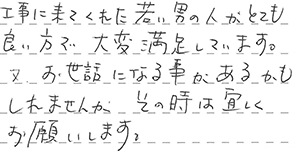 工事に来てくれた若い男の人がとても
良い方で 大変満足しています。
又 お世話になる事があるかも
しれませんが その時は宜しく
お願いします。